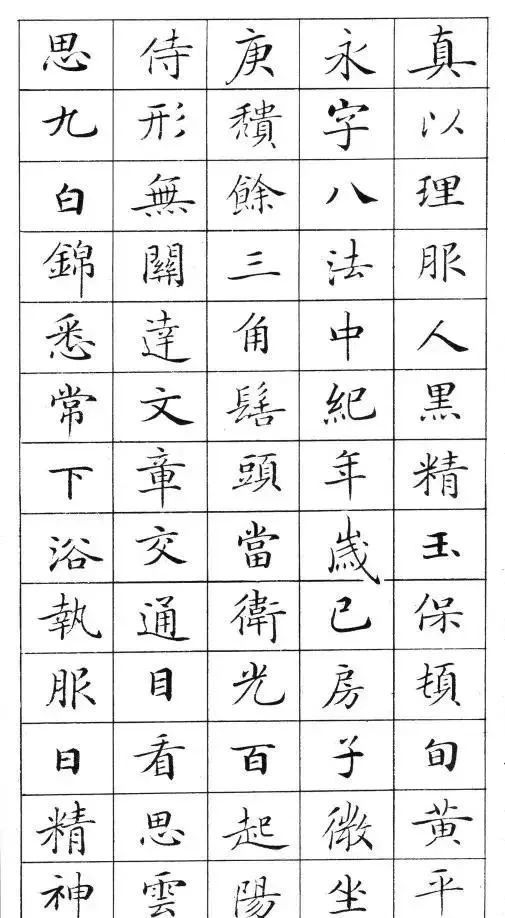 真以理服人黑精玉保頓旬黃平
永字八法中紀年歲已房子微坐
庚穨餘三角髻頭當衛光百起陽
侍形無關達文章交通目看思雲
思九白錦悉常下浴執服日精神